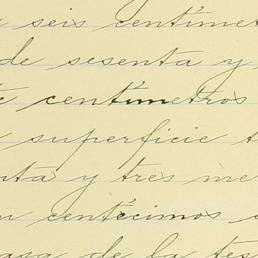 y seis centímet
de sesenta y
centímetros
superficie
nta y tres me
centécimos
casa de la tes